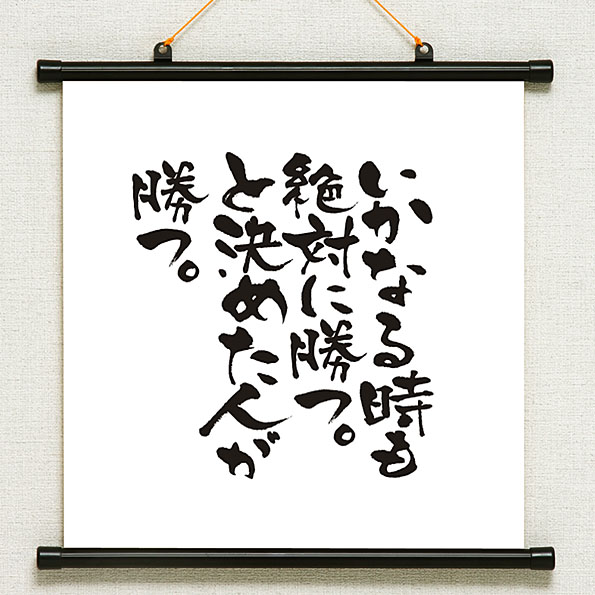 いかなる時も
絶対に勝つ。
と決めた人が
勝つ。